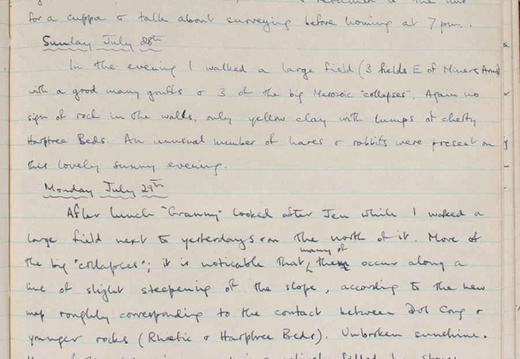 for a cuppa & talk about surveying before homing at 7 pm.
Sunday July 28th
In the evening I walked a large field (3 fields E of Miners Arms)
with a good many gruffs & 3 of the big Mesozoic "collapses". Again no
sign of rock in the walls, only yellow clay with lumps of cherty
Harptree Beds. An unusual number of hares & rabbits were present on
this lovely sunny evening.
Monday July 29th
After lunch "Granny" looked after Jen while I walked a
large field next to yesterdays on the north of it. More of
the big "collapses"; it is noticable that many of them occur along a
line of slight steepening of the slope, according to the new
map roughly corresponding to the contact between Dol Cong &
younger rocks (Rhaetic & Harptree Beds). Unbroken sunshine.